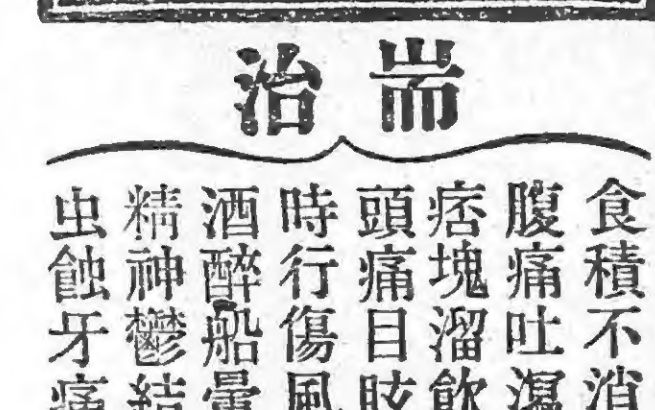 耑治
食積不消
腹痛吐瀉
痞塊溜飲
頭痛目眩
時行傷風
酒醉船暈
精神鬱結
虫蝕牙痛